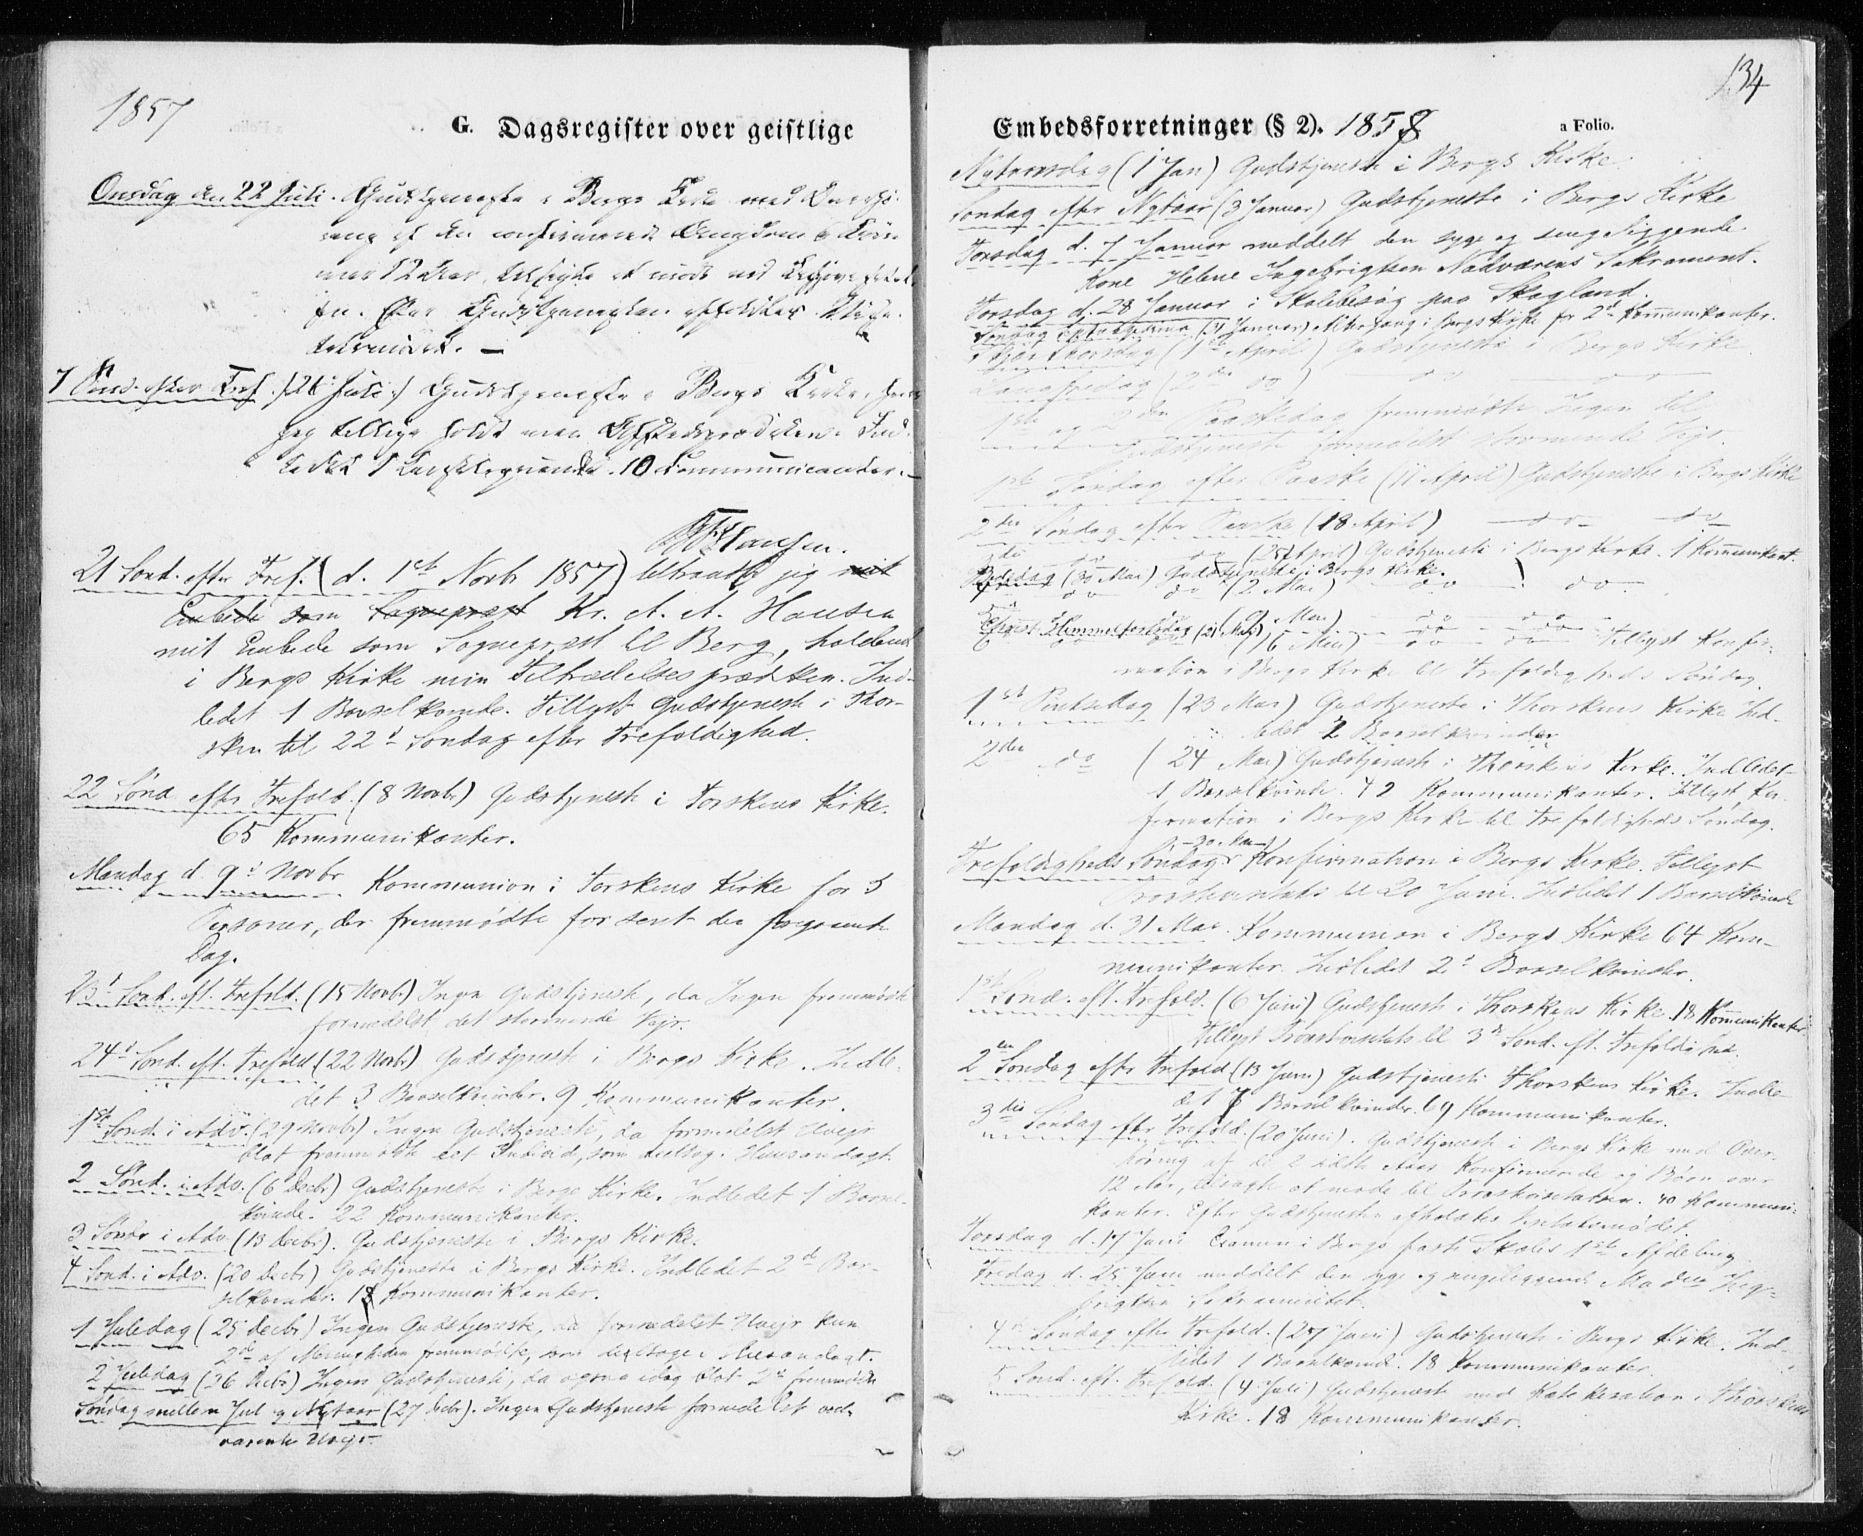 1857
G. Dagsregister over geistlige
Onsdag den 22 Juli. Gudstjeneste i Bergs Kirke med Overhø-
ring af den confirmerede Ungdom
Gudstjenesten
7 Sønd. efter Tref. (26 Juli) Gudstjeneste i Bergs Kirke, hvor
jeg tillige holdt min Afskedsprædiken. Ind-
ledet 1 10 Communicanter. –
Hansen.
21 Sønd. efter Tref. (d. 1ste Novbr 1857) tiltraadte jeg mit
Embede som Sogneprest Kr. A. A. Hansen
mit Embede som Sogneprest til Berg, holdende
i Bergs Kirke min Tiltrædelsesprædiken. Ind-
ledet 1 Barselkvinde. Tillyst Gudstjeneste i Thor-
sken til 22d Søndag efter Trefoldighed.
22 Sønd efter Trefold. (8 Novbr) Gudstjeneste i Torskens Kirke.
65 Kommunikanter.
Mandag d. 9d Novbr Kommunion i Torskens Kirke for 3
Personer, der fremmødte for sent den foregaaende
Dag.
23d Sønd. eft. Trefold. (15 Novb.) Ingen Gudstjeneste, da Ingen fremmødte
formedelst det stormende Vejr.
24d Sønd. eft. Trefold (22 Novb.) Gudstjeneste i Bergs Kirke. Indle-
det 3 Barselkvinder. 9 Kommunikanter.
1ste Sønd. i Adv. (29 Novbr) Ingen Gudstjeneste, da formedelst Uvejr
blot fremmødte eet Individ, som deeltog i Huusandagt.
2 Sønd. i Adv. (6 Decbr) Gudstjeneste i Bergs Kirke. Indledet 1 Barsel-
kvinde. 22 Kommunikanter.
3 Sønd. i Adv (13 Decbr). Gudstjeneste i Bergs Kirke.
4 Sønd. i Adv. (20 Decbr) Gudstjeneste i Bergs Kirke. Indledet 2d Bar-
selkvinder. 18 Kommunikanter.
1 Juledag (25 Decbr) Ingen Gudstjeneste, da formedelst Uvejr kun
2de af Menigheden fremmødte, som deeltoge i Huusandagt.
2 Juledag (26 Decbr) Ingen Gudstjeneste, da ogsaa idag blot 2de fremmødte
Søndag mellem Jul og Nytaar (27 Decbr). Ingen Gudstjeneste formedelst ved-
varende Uvejr.
134
Embedsforretninger (§ 2). 1858
a Folio.
Nytaarsdag (1 Jan) Gudstjeneste i Bergs Kirke.
Søndag efter Nytaar (3 Januar) Gudstjeneste i Bergs Kirke
Torsdag d. 7 Januar meddelt den syge og sengeliggende
Kone Helene Ingebrigtsen Nadverens Sakrament.
Torsdag d. 28 Januar i Skolebesøg paa Skagland.
Søndag Septuagesima (31 Januar) Altergang i Bergs Kirke for 2d Kommunikanter.
Skjær Thorsdag (1ste April) Gudstjeneste i Bergs Kirke
Langfredag (2den do) do do
1ste og 2den Paaskedag fremmødte Ingen til
Gudstjeneste formedelst stormende Vejr.
1ste Søndag efter Paaske (11 April) Gudstjeneste i Bergs Kirke
2den Søndag efter Paaske (18 April) do do
3die do do (25 April) Gudstjeneste i Bergs Kirke. 1 Kommunikant.
Bededag (30 Mai) Gudstjeneste i Bergs Kirke.
do do (2 Mai) do do
5 (9 Mai) do do
Christi Himmelfartsdag (21 Mai) do do
6 do do (16 Mai) do do Tillyst Konfir-
mation i Bergs Kirke til Trefoldigheds Søndag.
1ste Pintsedag (23 Mai) Gudstjeneste i Thorskens Kirke Ind-
ledet 2 Barselkvinder
2den do (24 Mai) Gudstjeneste i Thorskens Kirke. Indledet
1 Barselkvinde. 72 Kommunikanter. Tillyst Kon-
firmation i Bergs Kirke til Trefoldigheds Søndag.
30 Mai
Trefoldigheds Søndag Konfirmation i Bergs Kirke. Tillyst
Provstevisitats til 20 Juni. Indledet 1 Barselkvinde
Mandag d. 31 Mai. Kommunion i Bergs Kirke 64 Kom-
munikanter. Indledet 2d Barselkvinder.
1ste Sønd. eft. Trefold. (6 Juni) Gudstjeneste i Thorskens Kirke. 18 Kommunikanter.
Tillyst Provstevisitats til 3de Sønd. eft. Trefoldighed.
2den Søndag efter Trefold (13 Juni) Gudstjeneste Thorskens Kirke. Indle-
det 7 Barselkvinder. 69 Kommunikanter.
3die Søndag efter Trefold. (20 Juni). Gudstjeneste i Bergs Kirke med Over-
høring af de 2 sidste Aars Konfirmerede og Børn over
12 Aar, tilsagte at møde til Provstevisitatsen. 40 Kommuni-
kanter. Efter Gudstjenesten afholdtes Visitatsmødet.
Torsdag d. 17 Juni Examen i Bergs faste Skoles 1ste Afdeling
Fredag d. 25 Juni meddelt den syge og sengeliggende
Sakramentet.
4de Søndag efter Trefold. (27 Juni) Gudstjeneste i Bergs Kirke. Ind-
ledet 1 Barselkvinde. 18 Kommunikanter.
5 Sønd. eft. Trefold. (4 Juli) Gudstjeneste med Katekisation i Thorskens
Kirke. 18 Kommunikanter.